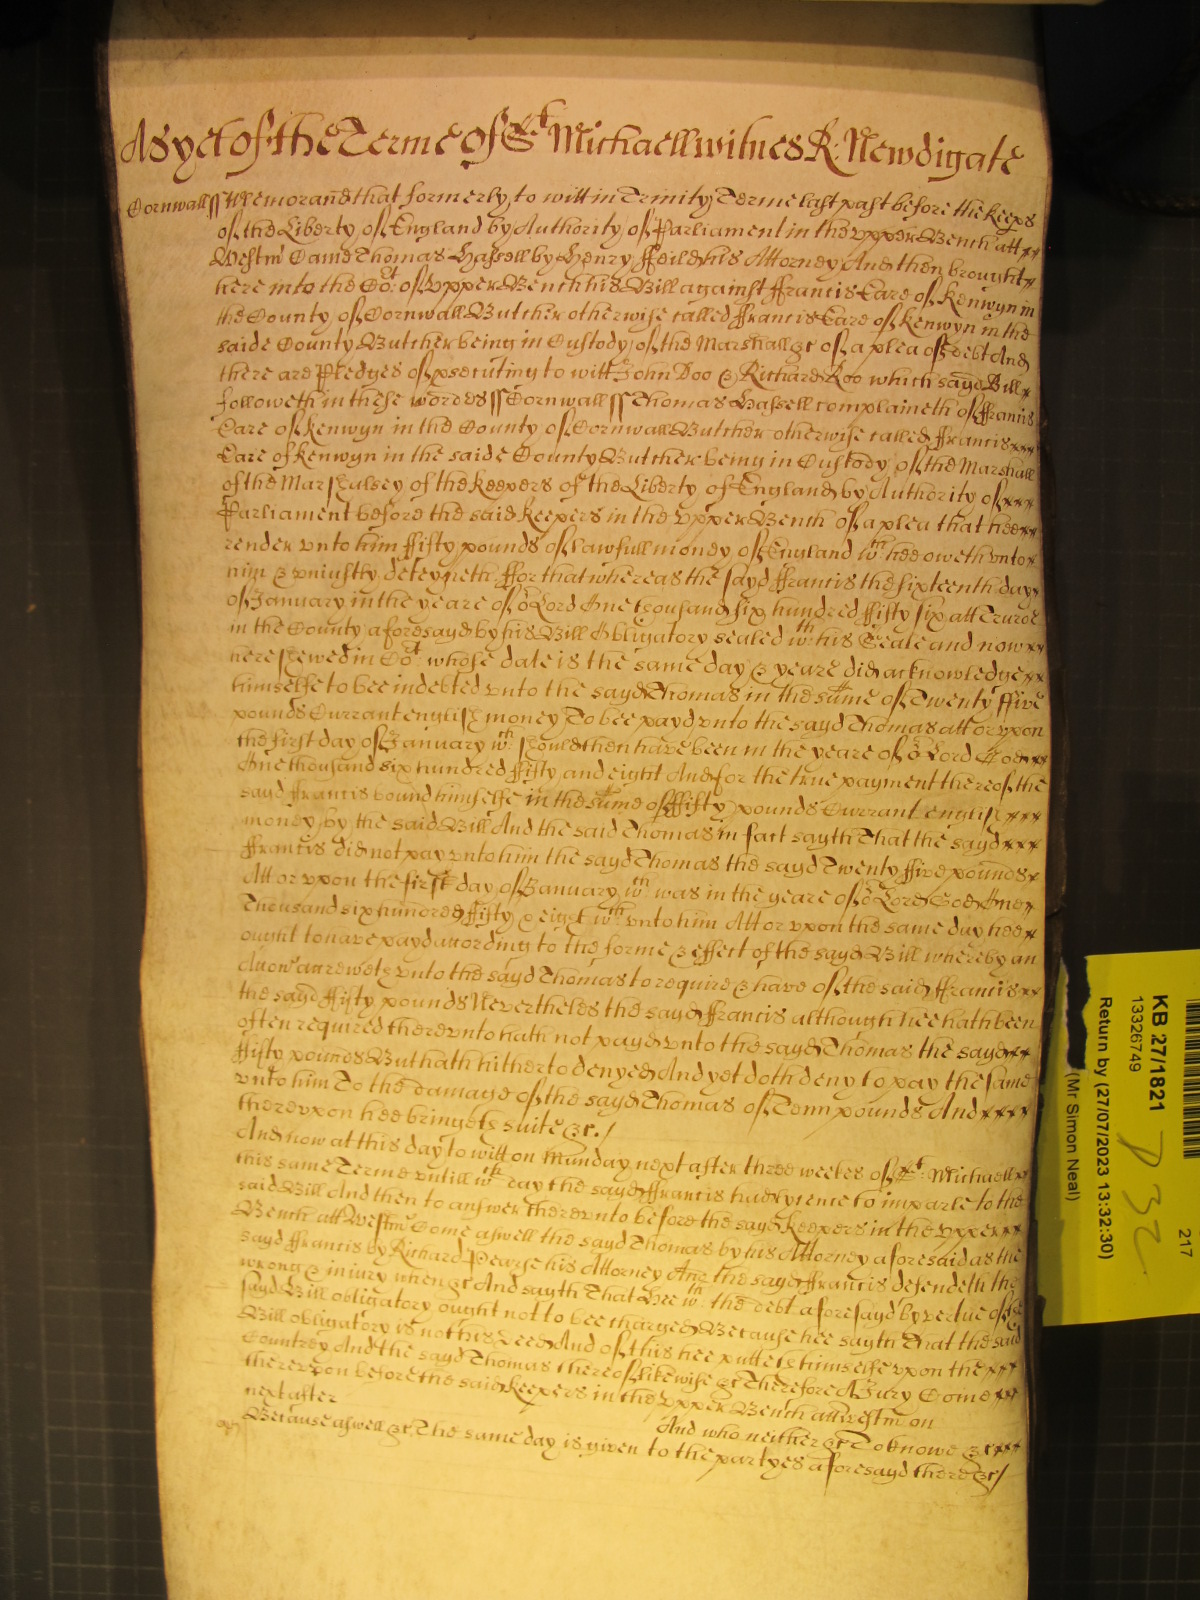 As yet of the Terme of St Michaell witnes R: Newdigate
Cornwall ss Memorand that formerly to witt in Trinity Terme last past before the keeps
of the Liberty of England by Authority of Parliament in the vpper Bench att xx
Westmr Came Thomas Hassell by Henry ffeild his Attorney And then brought
here into the Cot: of vpper Bench his Bill against ffrancis Care of Kenwyn in
the County of Cornwall Butcher otherwise called ffrancis Care of Kenwyn in the
saide County Butcher being in Custody of the Marshall &c of a plea of debt And
there are Pledges of psecuting to witt John Doo & Richard Roo which sayd Bill
followeth in these wordes ss Cornwall ss Thomas Hassell complaineth of ffrancis
Care of Kenwyn in the County of Cornwall Butcher otherwise called ffrancis xxx
Care of Kenwyn in the saide County Butcher being in Custody of the Marshall
of the Marshalsey of the keepers of the Liberty of England by Authority of xxx
Parliament before the said keepers in the vpper Bench of a plea that hee xx
render vnto him ffifty pounds of lawfull money of England wth: hee oweth vnto
him & vniustly deteyneth ffor that whereas the sayd ffrancis the sixteenth day
of January in the yeare of or Lord One thousand six hundred ffifty six att Truroe
in the County aforesayd by his Bill Obligatory sealed wth: his Seale and now xx
here shewed in Cot: whose date is the same day & yeare did acknowledge xx
himselfe to bee indebted vnto the sayd Thomas in the sume of Twenty ffive
pounds Currant english money To bee payd vnto the sayd Thomas att or vpon
the first day of January wth: should then have been in the yeare of or Lord God xx
One thousand six hundred ffifty and eight And for the true payment thereof the
sayd ffrancis bound himselfe in the sume of ffifty pounds Currant english xxx
money by the said Bill And the said Thomas in fact sayth That the sayd xxx
ffrancis did not pay vnto him the sayd Thomas the sayd Twenty ffive pounds x
Att or vpon the first day of January wth: was in the yeare of or Lord God One
Thousand six hundred ffifty & eight wth: vnto him Att or vpon the same day hee
ought to have payd according to the forme & effect of the sayd Bill whereby an
Accon accrewetℯ vnto the sayd Thomas to require & have of the said ffrancis xx
the sayd ffifty pounds Nevertheles the sayd ffrancis although hee hath been
often required therevnto hath not payd vnto the sayd Thomas the sayd xx
ffifty pounds But hath hitherto denyed And yet doth deny to pay the same
vnto him To the damage of the sayd Thomas of Tenn pounds And xxxx
therevpon hee bringetℯ suite &c./
And now at this day to witt on Munday next after three weekes of St: Michaell
this same Terme vntill wth: day the sayd ffrancis had lycence to imparle to the
said Bill And then to answer therevnto before the sayd keepers in the vpper xxx
Bench att Westmr Come aswell the sayd Thomas by his Attorney aforesaid as the
sayd ffrancis by Richard Pearse his Attorney And the sayd ffrancis defendeth the
wrong & iniury when &c And sayth That hee wth: the debt aforesayd by vertue of the
sayd Bill obligatory ought not to bee charged Because hee sayth That the said
Bill obligatory is not his deed And of this hee puttetℯ himselfe vpon the xxx
Countrey And the sayd Thomas thereof likewise &c Therefore A Jury Come xx
therevpon before the said keepers in the vpper Bench att Westmr on
next after And who neither &c To knowe &c xxx
Because aswell &c, The same day is given to the partyes aforesayd there &c/
217
KB 27/1821
13326749
Return by (27/07/2023 13:32:30)
(Mr Simon Neal)